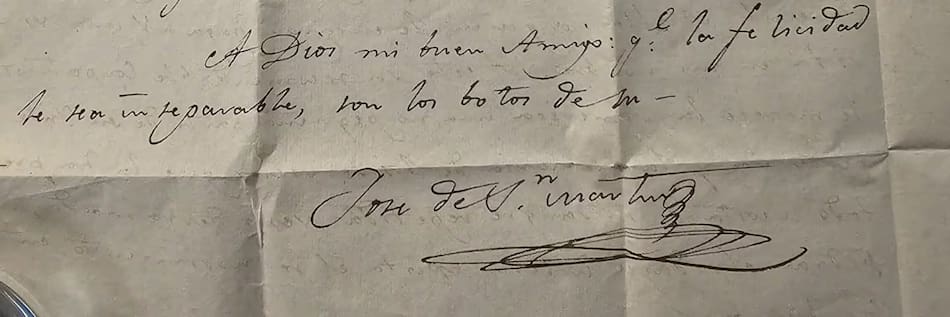 A Dios mi buen Amigo: q.e la felicidad
le sea inseparable, son los botos de su –
José de S.n Martin